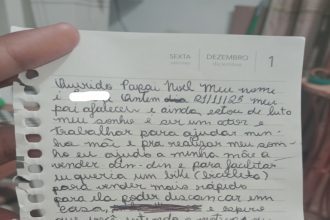 SEXTA
DEZEMBRO
1
Querido Papai Noel Meu nome
é Ontem dia 21/11/23 meu
pai afaleceu e ainda estou de luto
meu sonho e ser um ator e
trabalhar para ajudar min
ha mãe e pra realizar meu son
ho eu ajudo a minha mãe á
vender din-din e para facilitar
eu queria um bike (bicicleta)
para vender mais rápido
para ela poder descansar em
casa, e espero
que você